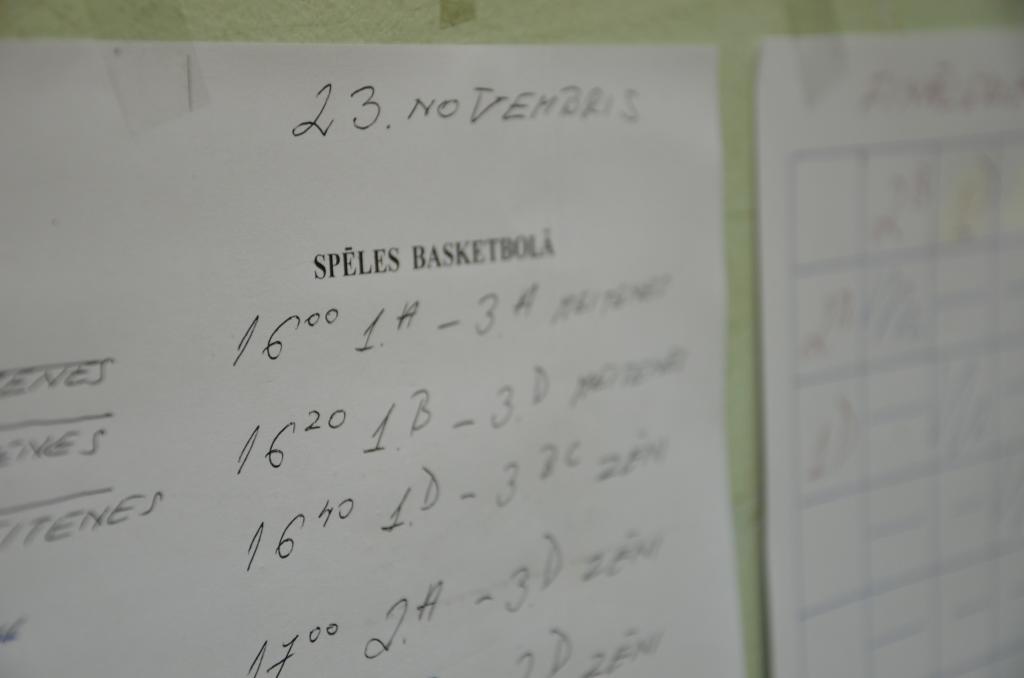 23. NOVEMBRIS
SPĒLES BASKETBOLĀ
16⁰⁰ 1.A - 3.A MEITENES
16²⁰ 1.B - 3.D MEITENES
16⁴⁰ 1.D - 3.BC ZĒNI
17⁰⁰ 2.A - 3.D ZĒNI
D ZĒNI
ENES
ENES
ITENES
2B
1D